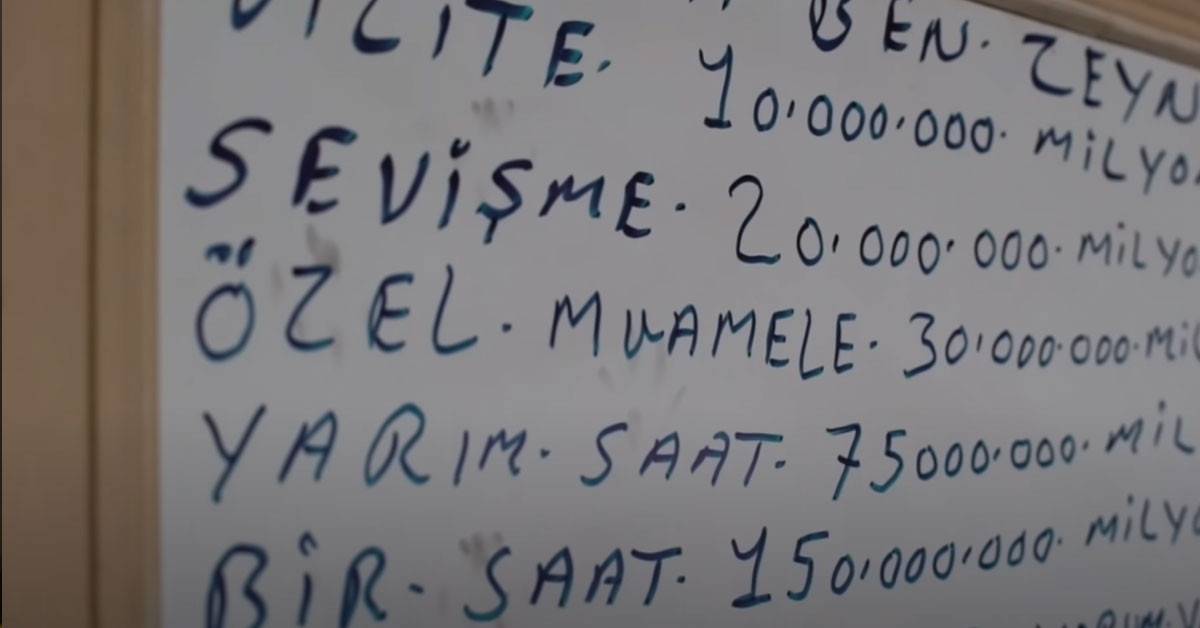 BEN. ZEYN
VİZİTE. 10.000.000. MİLYO
SEVİŞME. 20.000.000. MİLYO
ÖZEL. MUAMELE. 30.000.000. MİL
YARIM. SAAT. 75000.000. MİL
BİR. SAAT. 150.000.000. MİLYO